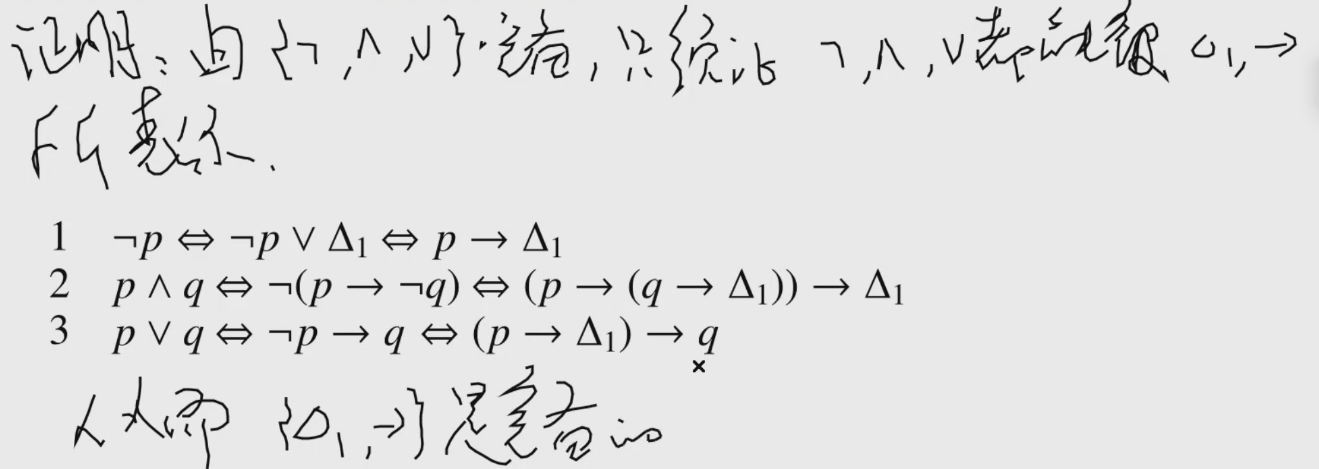 证明:由 {¬,∧,∨} 完备,只须证 ¬,∧,∨ 都能被 Δ₁,→
所表示.
1 ¬p ⇔ ¬p ∨ Δ₁ ⇔ p → Δ₁
2 p ∧ q ⇔ ¬(p → ¬q) ⇔ (p → (q → Δ₁)) → Δ₁
3 p ∨ q ⇔ ¬p → q ⇔ (p → Δ₁) → q
从而 {Δ₁,→} 是完备的